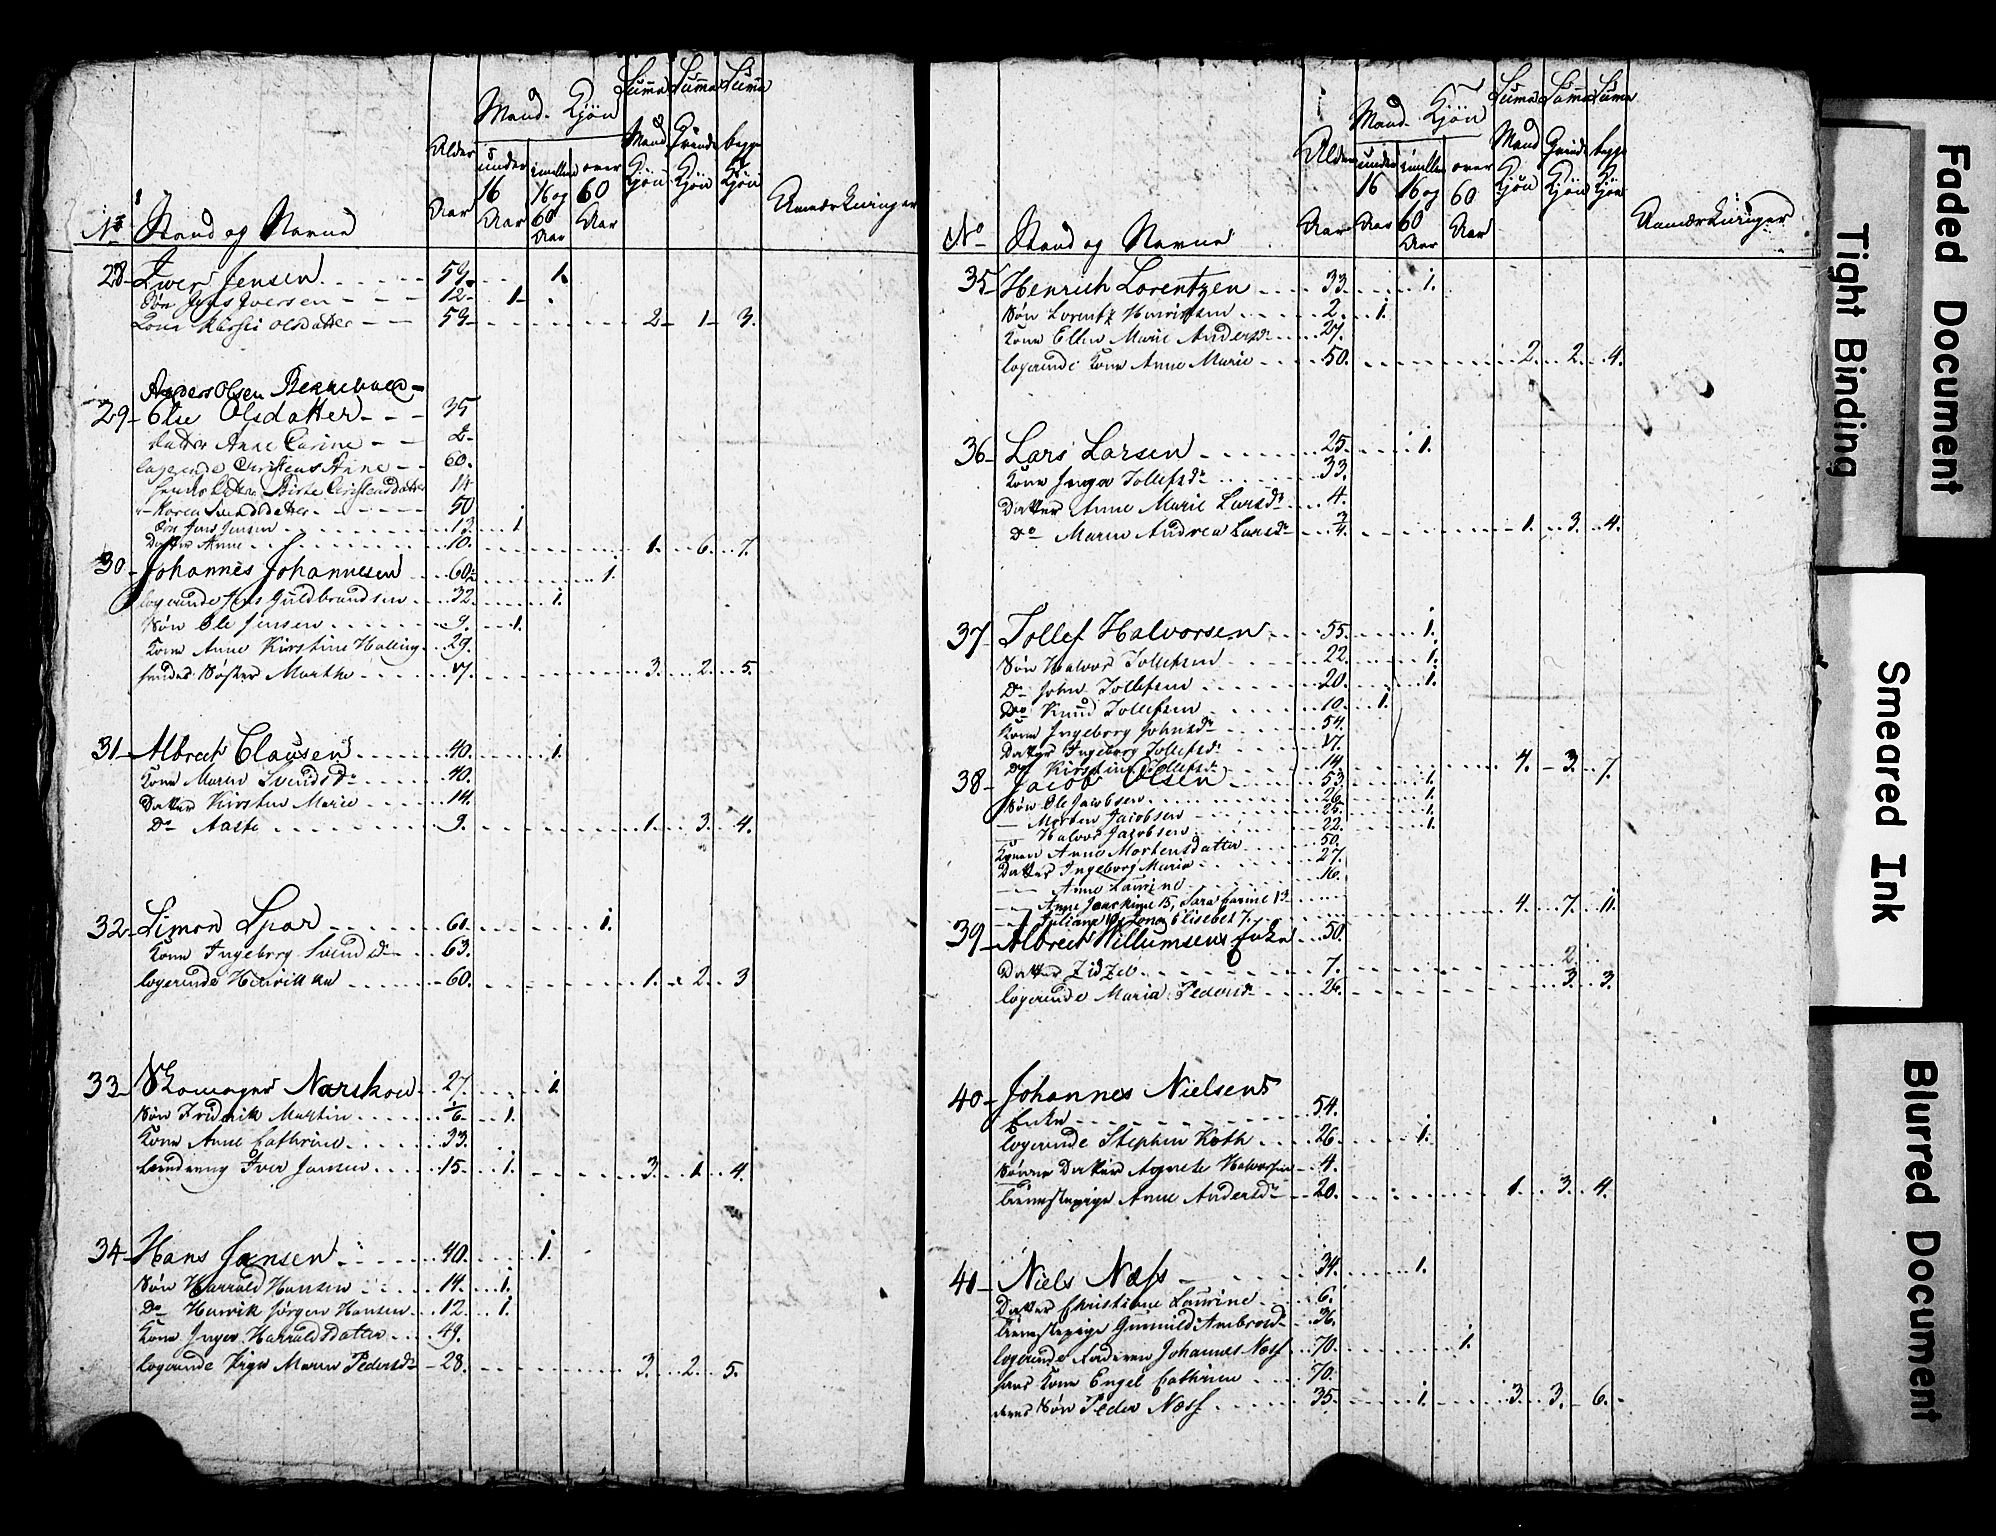 No Stand og Navne Alder Aar Mand Kjön under 16 Aar imellem 16 og 60 Aar over 60 Aar Suma Mand Kjön Suma Qvinde Kjön Suma begge Kjön Anmærkninger
28 Iver Jensen 59. 1.
Sön Jens Iversen 12 1
Kone Kirsti Olsdatter 53 2 1 3.
Anders Olsen
29 Else Olsdatter 35
Datter Anne Carine 2
logerende Christens Anne 60.
hendes Datter Birte Christensdatter 14
Karen Svendsdatter 50
Sön Jens Jensen 13 1
Datter Anne 10. 1. 6. 7.
30 Johannes Johannesen 60 1.
logerende Jens Guldbrandsen 32 1.
Sön Ole Jensen 9. 1.
Kone Anne Kirstine Halling 29.
hendes Söster Marthe 17. 3. 2. 5.
31 Albrect Clausen 40. 1.
Kone Maren Svends Dr 40.
Datter Kirsten Marie 14.
Do Aaste 9. 1. 3. 4.
32 Simon Spar 61. 1.
Kone Ingeborg Svends Dr 63.
logerende Henrikka 60. 1. 2. 3
33 Skomager Narskou 27. 1
Sön Fridrik Martin 1/6 1.
Kone Anne Cathrine 33.
Læredreng Iver Jansen 15. 1. 3. 1. 4.
34 Hans Jansen 40. 1.
Sön Harrald Hansen 14. 1.
Do Henrik Jörgen Hansen 12. 1.
Kone Inger Harraldsdatter 49.
logerende Pige Maren Pedersdr 28. 3. 2. 5.
No Stand og Navne Alder Aar Mand Kjön under 16 Aar imellem 16 og 60 Aar over 60 Aar Suma Mand Kjön Suma Qvinde Kjön Suma begge Kjön Anmærkninger
35 Henrich Lorentzen 33 1.
Sön Lorentz Henrichsen 2. 1.
Kone Ellen Marie Andersdr 27.
logerende Kone Anne Marie 50. 2. 2. 4.
36 Lars Larsen 25. 1.
Kone Inga Tollefsdr 33.
Datter Anne Marie Larsdr 4.
Do Maren Andrea Larsdr 3/4. 1. 3. 4.
37 Tollef Halvorsen 55. 1.
Sön Halvor Tollefsen 22. 1.
Do John Tollefsen 20. 1.
Do Knud Tollefsen 10. 1.
Kone Ingeborg Johnsdr 54.
Datter Ingeborg Tollefsdr 17.
Do Kirstine Tollefsdr 14. 4. 3. 7.
38 Jacob Olsen 53. 1.
Sön Ole Jacobsen 26. 1.
Morten Jacobsen 25. 1.
Halvor Jacobsen 22. 1.
Konen Anne Mortensdatter 50.
Datter Ingeborg Maria 27.
Anne Laurine 16.
Anne Joachime 15, Sara Carine 13
Juliane 10, Jona Elisebet 7. 4. 7. 11.
39 Albrect Willumsens Enke 50.
Datter Zidzel 7. 2.
logerende Maria Pedersdr 26. 3. 3.
40 Johannes Nielsens
Enke 54.
logerende Stephen Koth 26. 1.
Datter Agnete Halvorsen 4.
Tienestepige Anne Andersdr 20. 1. 3. 4.
41 Niels Næss 34. 1.
Datter Christiane Laurine 6.
Tienestepige Gunnild Ambrosd 36.
logerende Faderen Johannes Næss 70. 1.
hans Kone Engel Cathrine 70.
deres Sön Peder Næss 35. 1. 3. 3. 6.
Faded Document
Tight Binding
Smeared Ink
Blurred Document